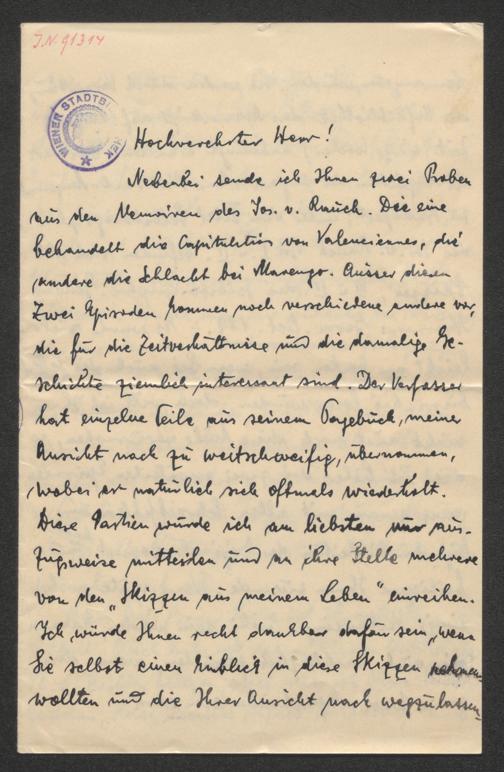 I.N. 91314
WIENER STADTBIBLIOTHEK
Hochverehrter Herr!
Nebenbei sende ich Ihnen zwei Proben
aus den Memoiren des Jos. v. Rauch. Die eine
behandelt die Capitulation von Valenciennes, die
andere die Schlacht bei Marengo. Ausser diesen
zwei Episoden kommen noch verschiedene andere vor,
die für die Zeitverhältnisse und die damalige Ge-
schichte ziemlich interessant sind. Der Verfasser
hat einzelne Teile aus seinem Tagebuch, meiner
Ansicht nach zu weitschweifig, übernommen,
wobei er natürlich sich oftmals wiederholt.
Diese Partien würde ich am liebsten nur aus-
zugsweise mitteilen und an ihre Stelle mehrere
von den „Skizzen aus meinem Leben" einreihen.
Ich würde Ihnen recht dankbar dafür sein, wenn
Sie selbst einen Einblick in diese Skizzen nehmen
wollten und die Ihrer Ansicht nach wegzulassen-